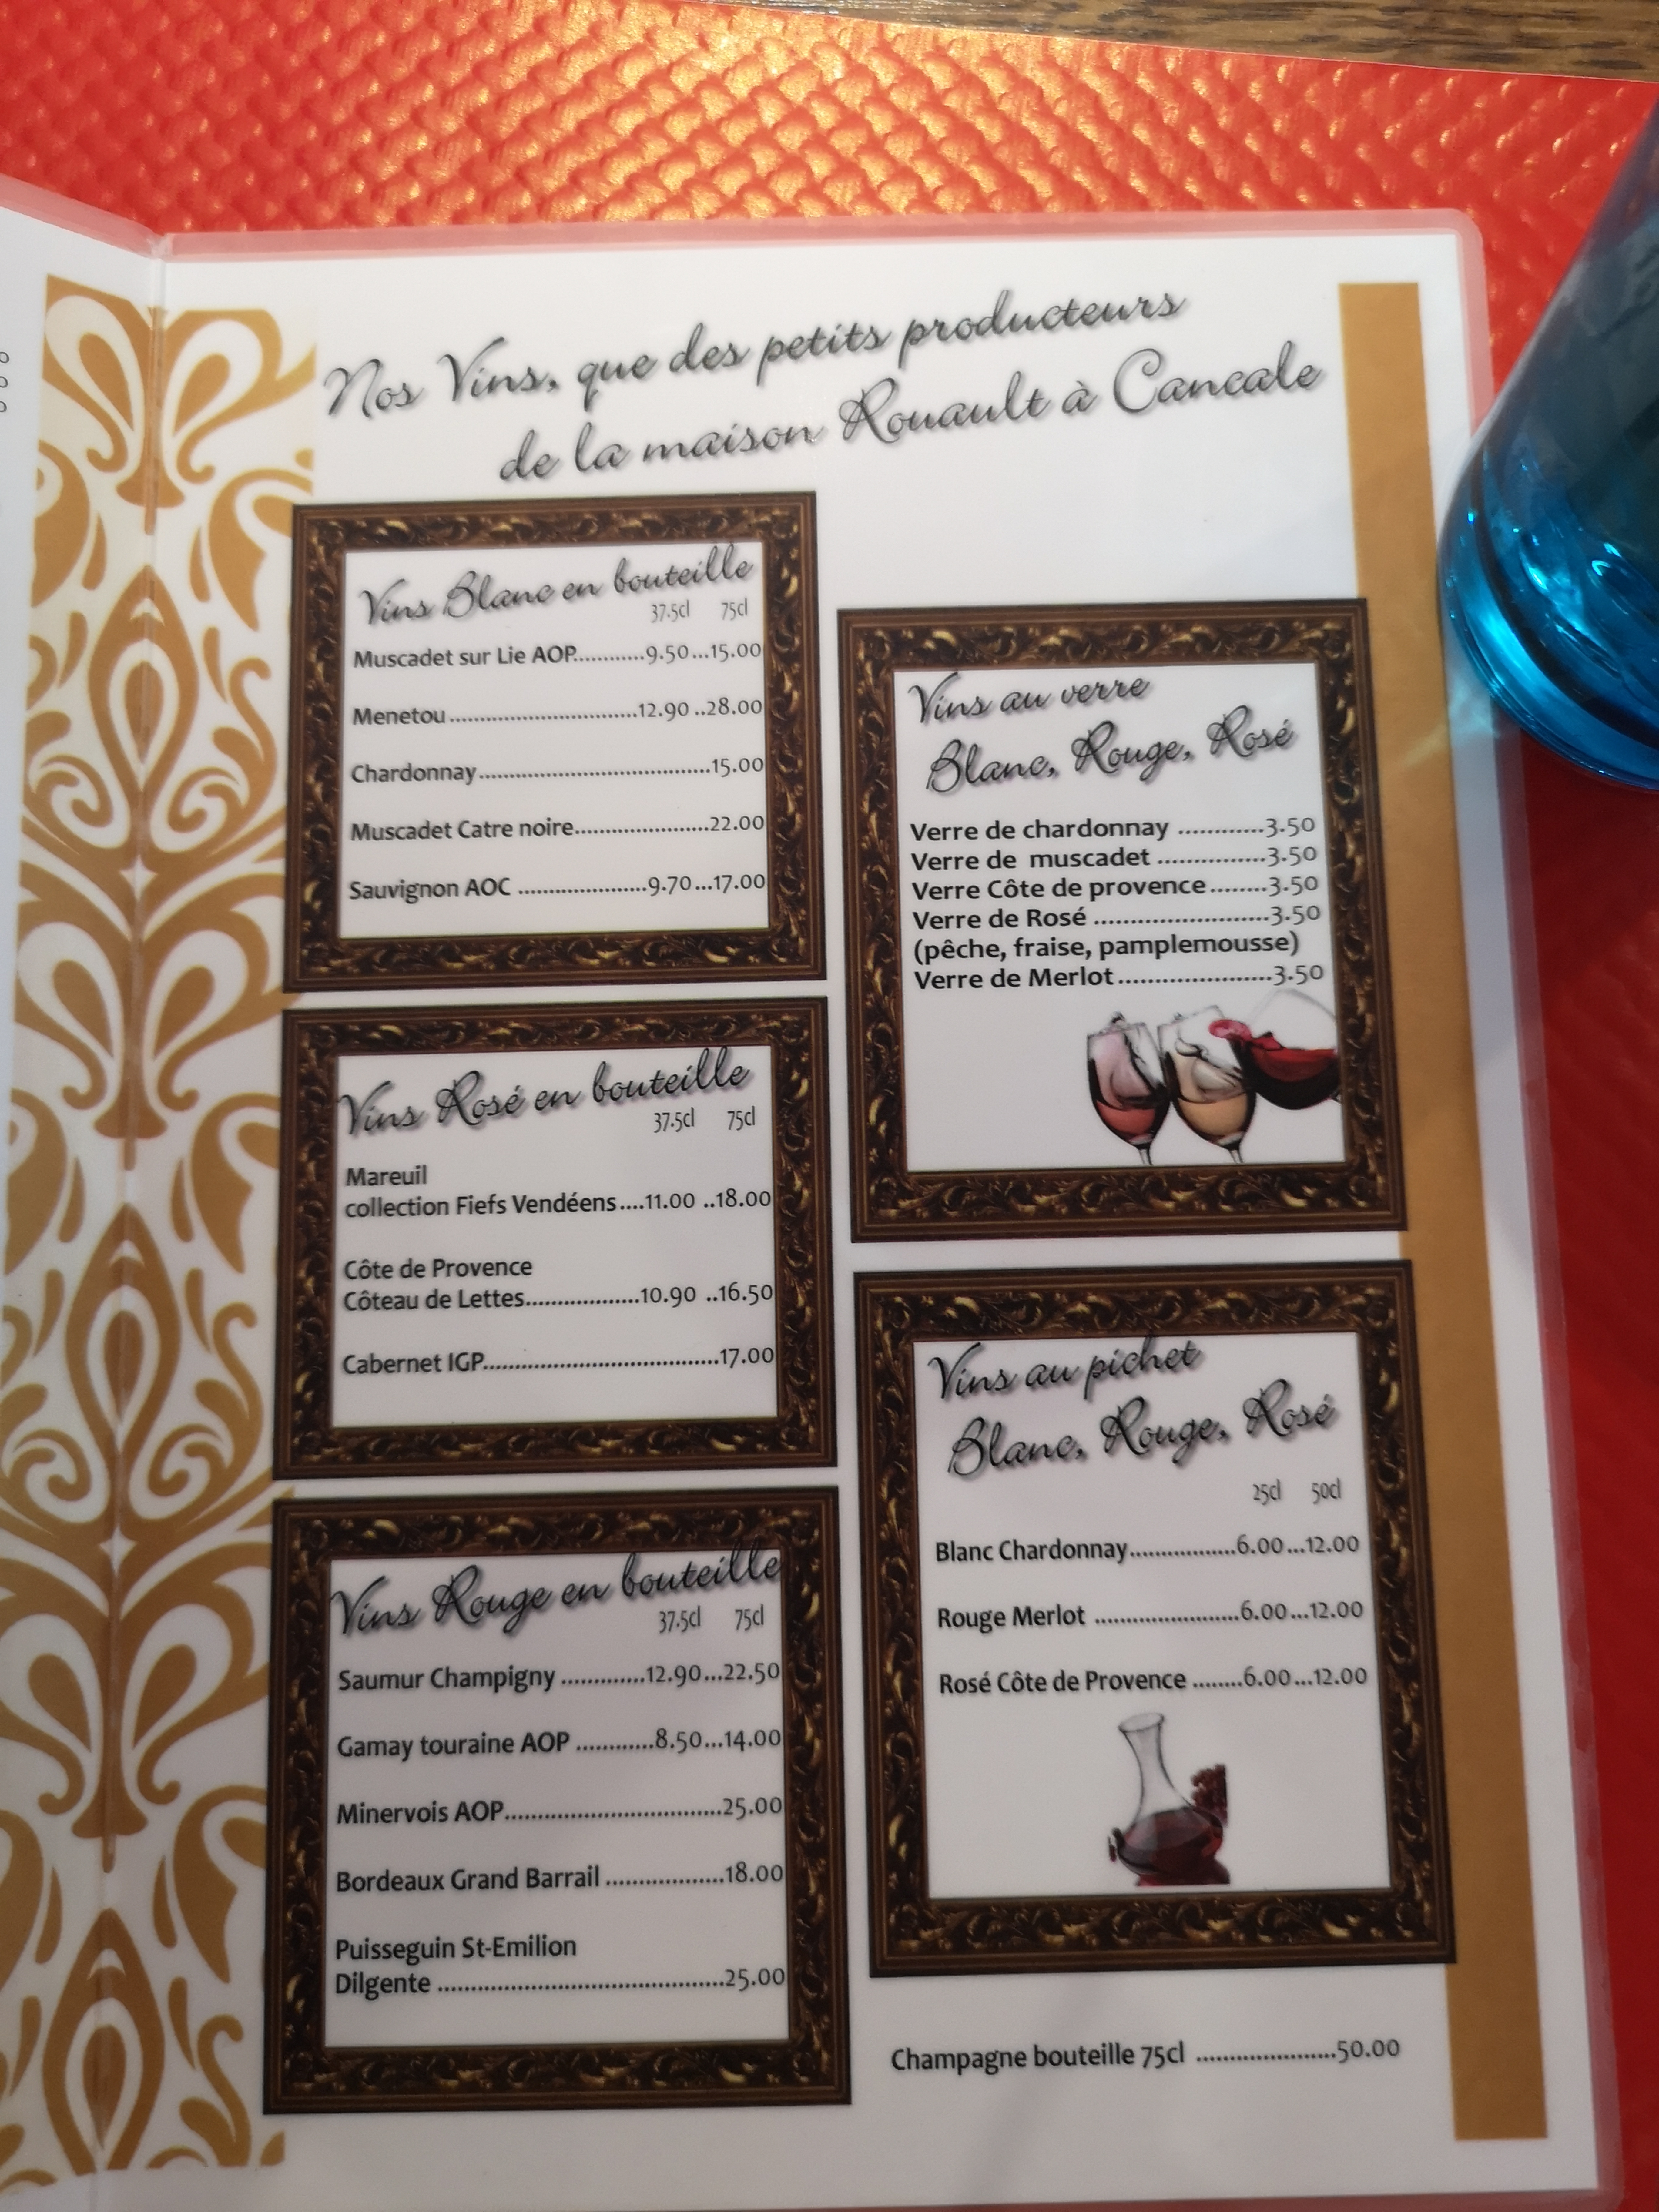 Nos Vins, que des petits producteurs
de la maison Rouault à Cancale
Vins Blanc en bouteille
37.5cl 75cl
Muscadet sur Lie AOP............9.50...15.00
Menetou................................12.90 ..28.00
Chardonnay.......................................15.00
Muscadet Catre noire.......................22.00
Sauvignon AOC ......................9.70...17.00
Vins Rosé en bouteille
37.5cl 75cl
Mareuil
collection Fiefs Vendéens....11.00 ..18.00
Côte de Provence
Côteau de Lettes...................10.90 ..16.50
Cabernet IGP.......................................17.00
Vins Rouge en bouteille
37.5cl 75cl
Saumur Champigny .............12.90...22.50
Gamay touraine AOP ............8.50...14.00
Minervois AOP..................................25.00
Bordeaux Grand Barrail ..................18.00
Puisseguin St-Emilion
Dilgente ............................................25.00
Vins au verre
Blanc, Rouge, Rosé
Verre de chardonnay ............3.50
Verre de muscadet ...............3.50
Verre Côte de provence........3.50
Verre de Rosé ........................3.50
(pêche, fraise, pamplemousse)
Verre de Merlot.....................3.50
Vins au pichet
Blanc, Rouge, Rosé
25cl 50cl
Blanc Chardonnay.................6.00...12.00
Rouge Merlot .......................6.00...12.00
Rosé Côte de Provence ........6.00...12.00
Champagne bouteille 75cl ......................50.00